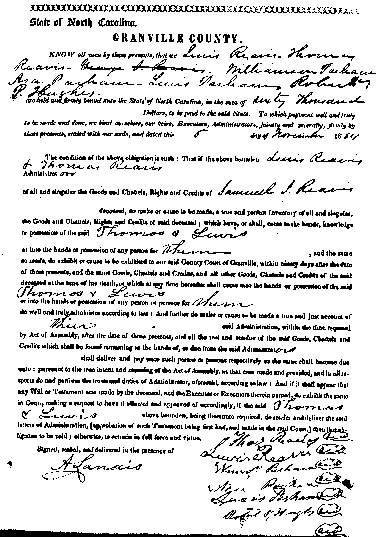 State of North Carolina.
GRANVILLE COUNTY.
KNOW all men by these presents, that we Lewis Reavis Thomas
Reavis Williamson Parham
Asa Parham Lewis Parham Robert
P. Hughes
are held and firmly bound unto the State of North Carolina, in the sum of sixty thousand
Dollars, to be paid to the said State. To which payment well and truly
to be made and done, we bind ourselves, our heirs, Executors, Administrators, jointly and severally, firmly by
these presents, sealed with our seals, and dated this 8 day of November
The condition of the above obligation is such: That if the above bounden Lewis Reavis
& Thomas Reavis
Administrators
of all and singular the Goods and Chattels, Rights and Credits of Samuel S. Reavis
deceased, do make or cause to be made, a true and perfect Inventory of all and singular,
the Goods and Chattels, Rights and Credits of said deceased; which have, or shall, come to the hands, knowledge
or possession of the said Thomas & Lewis
or into the hands or possession of any person for them, and the same
so made, do exhibit or cause to be exhibited to our said County Court of Granville, within ninety days after the date
of these presents, and the same Goods, Chattels and Credits, and all other Goods, Chattels and Credits of the said
deceased at the time of his death, or which at any time hereafter shall come into the hands or possession of the said
Thomas & Lewis
or into the hands or possession of any person or persons for them
do well and truly administer according to law: And further do make or cause to be made a true and just account of
their said Administration, within the time required
by Act of Assembly, after the date of these presents, and all the rest and residue of the said Goods, Chattels and
Credits which shall be found remaining in the hands of, or due from the said Administrators
shall deliver and pay unto such person or persons respectively as the same shall become due
unto: pursuant to the true intent and meaning of the Act of Assembly, in that case made and provided, and in all re-
spects do and perform the true and duties of Administrator, aforesaid, according to law: And if it shall appear that
any Will or Testament was made by the deceased, and the Executor or Executors therein named, do exhibit the same
in Court, making a request to have it allowed and approved of accordingly, if the said Thomas
& Lewis above bounden, being thereunto required, do render and deliver the said
letters of Administration, (approbation of such Testament being first had, and made in the said Court,) then this ob-
ligation to be void; otherwise, to remain in full force and virtue.
Signed, sealed, and delivered in the presence of
A. Landis
Thos Reavis
Lewis Reavis
Parham
Asa Parham
Lewis Parham
Robt P Hughes